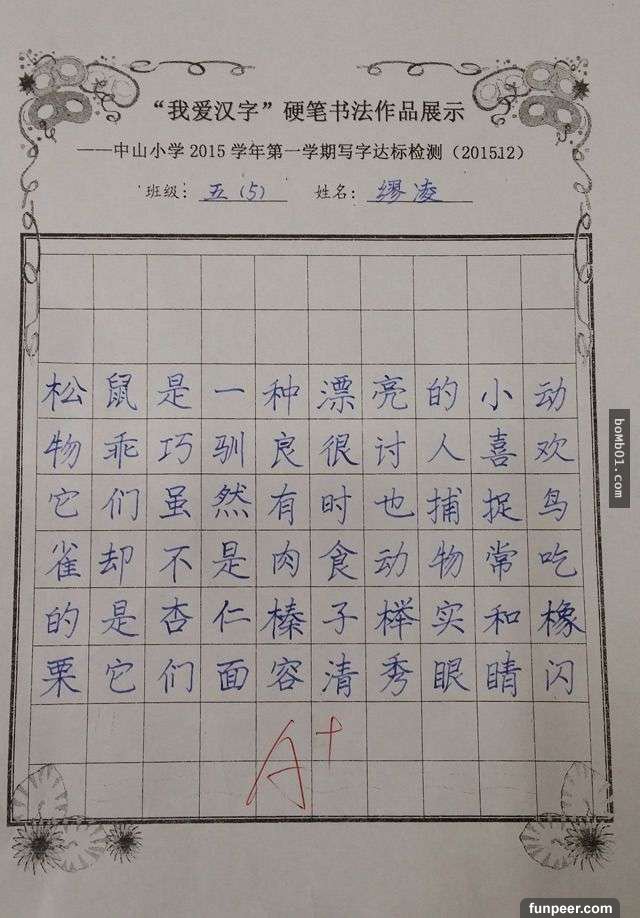 “我爱汉字”硬笔书法作品展示
——中山小学 2015 学年第一学期写字达标检测（2015.12）
班级： 五（5） 姓名： 缪凌
松鼠是一种漂亮的小动
物乖巧驯良很讨人喜欢
它们虽然有时也捕捉鸟
雀却不是肉食动物常吃
的是杏仁榛子榉实和橡
栗它们面容清秀眼睛闪
A+
bomb01.com
funpeer.com